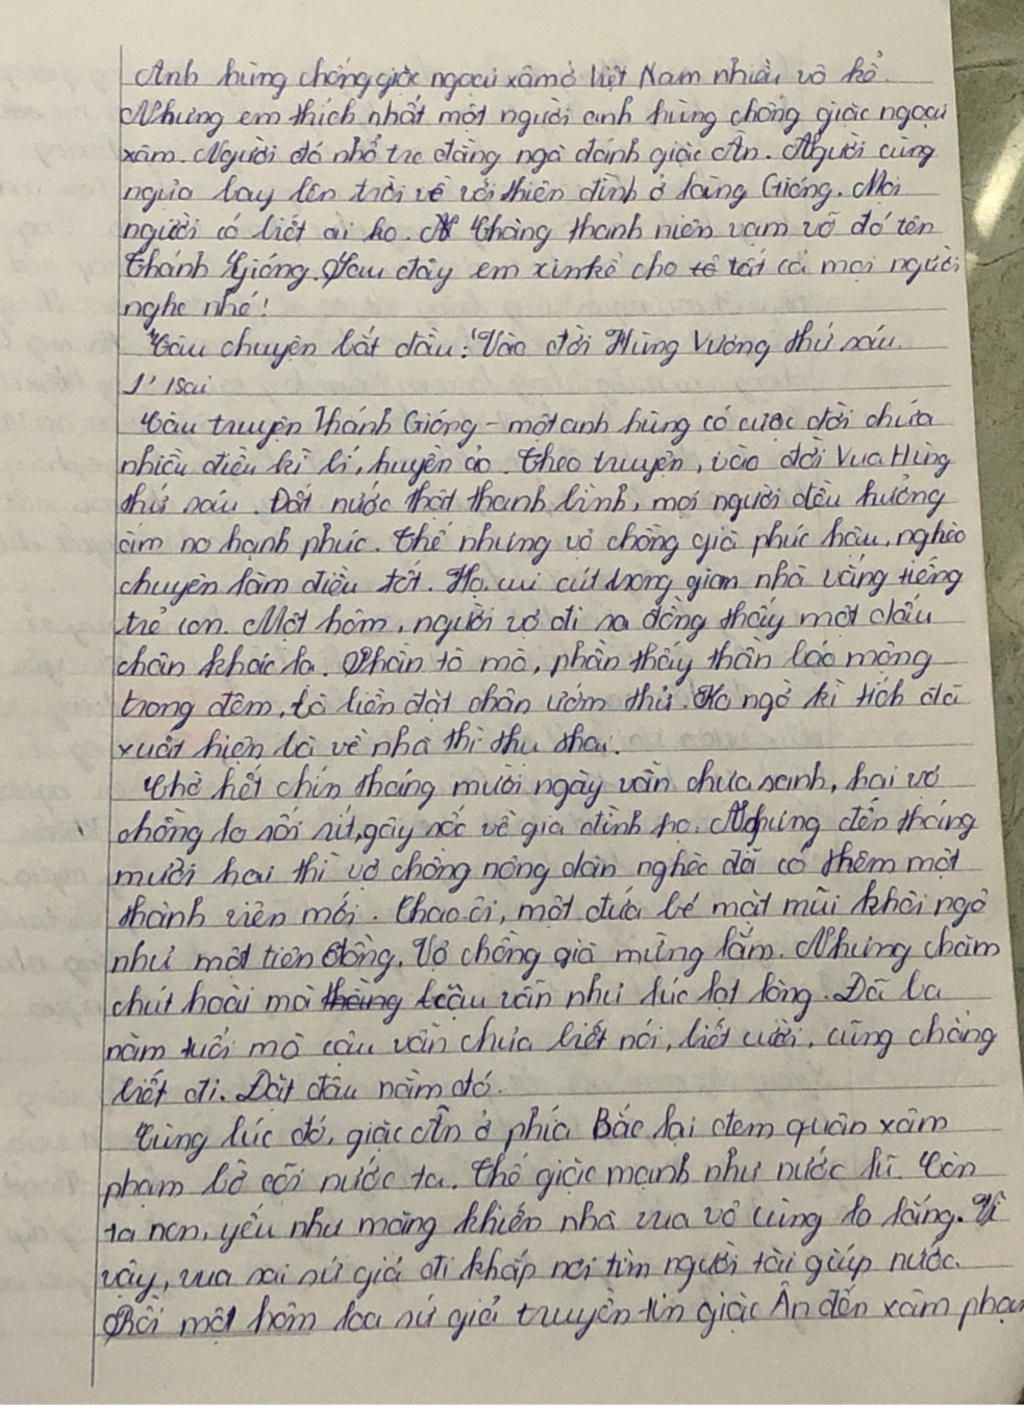 Anh hùng chống giặc ngoại xâm ở Việt Nam nhiều vô kể.
Nhưng em thích nhất một người anh hùng chống giặc ngoại
xâm. Người đó nhổ tre đằng ngà đánh giặc Ân. Người cùng
ngựa bay lên trời về với thiên đình ở làng Gióng. Mọi
người có biết ai ko. Chàng thanh niên vạm vỡ đó tên
Thánh Gióng. Sau đây em xin kể cho tất cả mọi người
nghe nhé!
Câu chuyện bắt đầu: "Vào đời Hùng Vương thứ sáu.
1' sai
Câu truyện Thánh Gióng - một anh hùng có cuộc đời chứa
nhiều điều kì bí, huyền ảo. Theo truyện, vào đời Vua Hùng
thứ sáu. Đất nước thật thanh bình, mọi người đều hưởng
ấm no hạnh phúc. Thế nhưng vợ chồng già phúc hậu, nghèo
chuyên làm điều tốt. Họ cui cút trong gian nhà vắng tiếng
trẻ con. Một hôm, người vợ đi ra đồng thấy một dấu
chân khác lạ. Phần tò mò, phần thấy thần báo mộng
trong đêm, bà liền đặt chân ướm thử. Ko ngờ kì tích đã
xuất hiện bà về nhà thì thụ thai.
Chờ hết chín tháng mười ngày vẫn chưa sanh, hai vợ
chồng lo sốt sắt, gây sốc về gia đình họ. Nhưng đến tháng
mười hai thì vợ chồng nông dân nghèo đã có thêm một
thành viên mới. Chao ôi, một đứa bé mặt mũi khôi ngô
như một tiên đồng. Vợ chồng già mừng lắm. Nhưng chăm
chút hoài mà thằng cậu vẫn như lúc lọt lòng. Đã ba
năm tuổi mà cậu vẫn chưa biết nói, biết cười, cũng chẳng
biết đi. Đặt đâu nằm đó.
Cùng lúc đó, giặc Ân ở phía Bắc lại đem quân xâm
phạm bờ cõi nước ta. Thế giặc mạnh như nước lũ. Còn
ta non, yếu như măng khiến nhà vua vô cùng lo lắng. Vì
vậy, vua sai sứ giả đi khắp nơi tìm người tài giúp nước.
Rồi một hôm loa sứ giả truyền tin giặc Ân đến xâm phạm